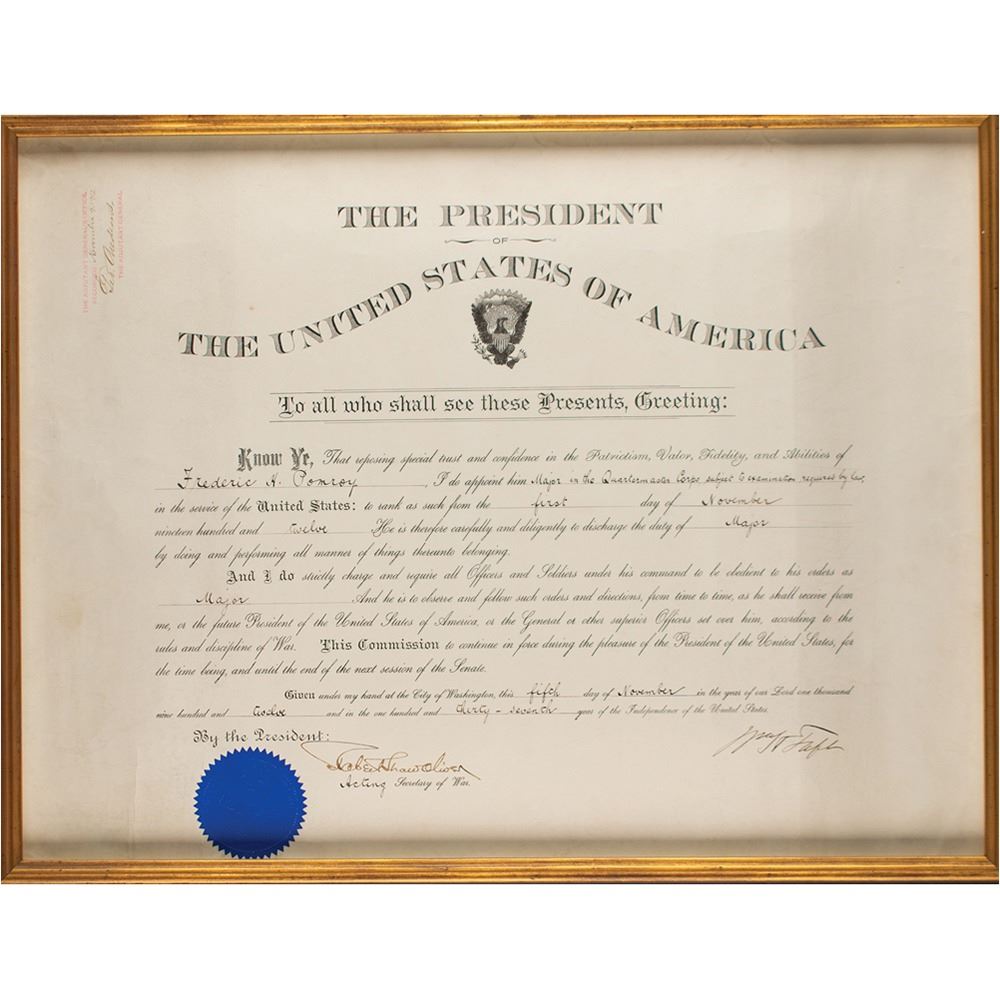 THE PRESIDENT
OF
THE UNITED STATES OF AMERICA
To all who shall see these Presents, Greeting:
Know Ye, That reposing special trust and confidence in the Patriotism, Valor, Fidelity, and Abilities of
Frederic H. Pomroy, I do appoint him Major in the Quartermaster Corps subject to examination required by law,
in the service of the United States: to rank as such from the first day of November
nineteen hundred and twelve He is therefore carefully and diligently to discharge the duty of Major
by doing and performing all manner of things thereunto belonging.
And I do strictly charge and require all Officers and Soldiers under his command to be obedient to his orders as
Major And he is to observe and follow such orders and directions, from time to time, as he shall receive from
me, or the future President of the United States of America, or the General or other superior Officers set over him, according to the
rules and discipline of War. This Commission to continue in force during the pleasure of the President of the United States, for
the time being, and until the end of the next session of the Senate.
Given under my hand at the City of Washington, this fifth day of November in the year of our Lord one thousand
nine hundred and twelve and in the one hundred and thirty-seventh year of the Independence of the United States.
By the President:
Wm H Taft
Robert Shaw Oliver
Acting Secretary of War.
THE ADJUTANT GENERAL'S OFFICE,
RECORDED
THE ADJUTANT GENERAL.